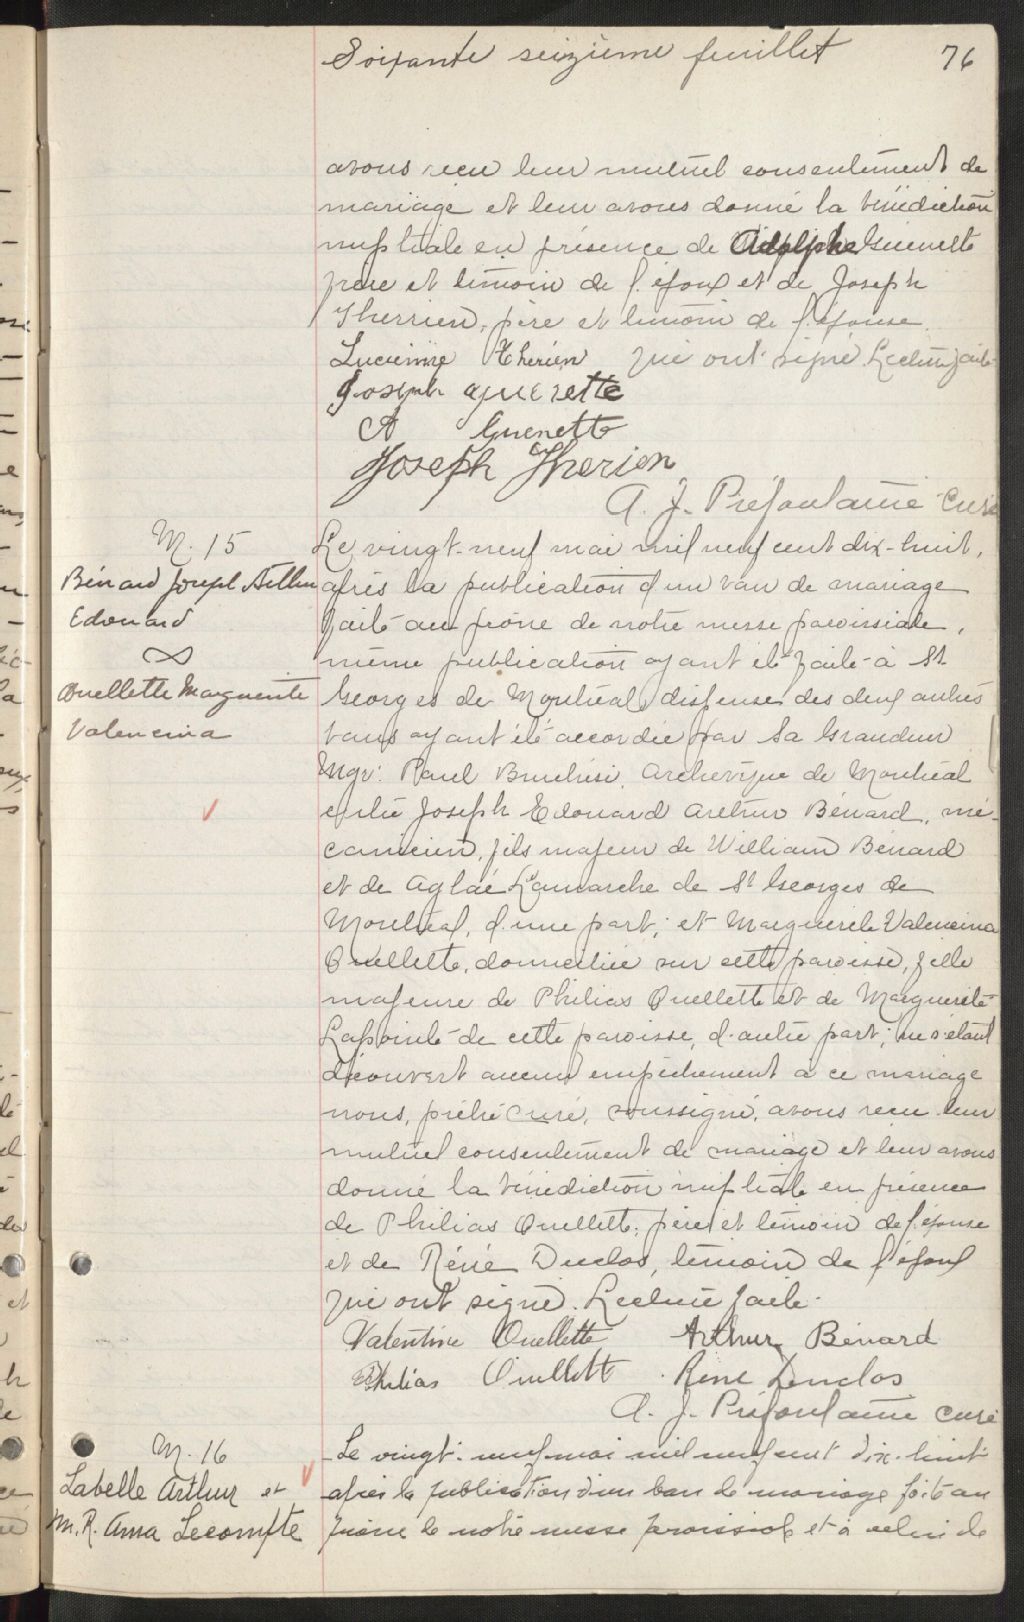 Soixante seizième feuillet 76
avons reçu leur mutuel consentement de
mariage et leur avons donné la bénédiction
nuptiale en présence de Adolphe Guenette
père et témoin de l'époux et de Joseph
Therrien, père et témoin de l'épouse
Lucienne Therien qui ont signé Lecture faite
Joseph guenette
A Guenette
Joseph Therien
A. J. Préfontaine curé
M. 15
Bénard Joseph Arthur
Edouard
∞
Ouellette Marguerite
Valencina
Le vingt-neuf mai mil neuf cent dix-huit,
après la publication d'un ban de mariage
faite au prône de notre messe paroissiale,
même publication ayant été faite à St
Georges de Montréal, dispense des deux autres
bans ayant été accordée par Sa Grandeur
Mgr. Paul Bruchési, Archevêque de Montréal
entre Joseph Edouard Arthur Bénard, mé-
canicien, fils majeur de William Bénard
et de Aglaé Lamarche de St Georges de
Montréal, d'une part; et Marguerite Valencina
Ouellette, domiciliée sur cette paroisse, fille
majeure de Philias Ouellette et de Marguerite
Lapointe de cette paroisse, d'autre part; ne s'étant
découvert aucun empêchement à ce mariage
nous, prêtre curé, soussigné, avons reçu leur
mutuel consentement de mariage et leur avons
donné la bénédiction nuptiale en présence
de Philias Ouellette, père et témoin de l'épouse
et de Réné Duclos, témoin de l'époux
qui ont signé. Lecture faite.
Valentine Ouellette Arthur Bénard
Philias Ouellett René Duclos
A. J. Préfontaine curé
M. 16
Labelle Arthur et
M. R. Anna Lecompte
Le vingt-neuf mai mil neuf cent dix-huit
après la publication d'un ban de mariage faite au
prône de notre messe paroissiale et à celui de